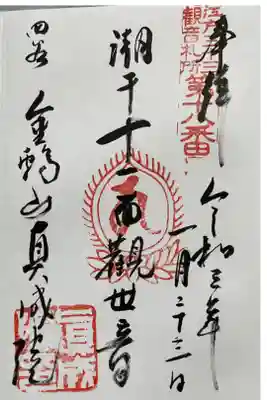 江戸三十三
観音札所
第十八番
奉拝
令和三年
一月二十三日
潮干十一面観世音
四谷
金鶏山真成院